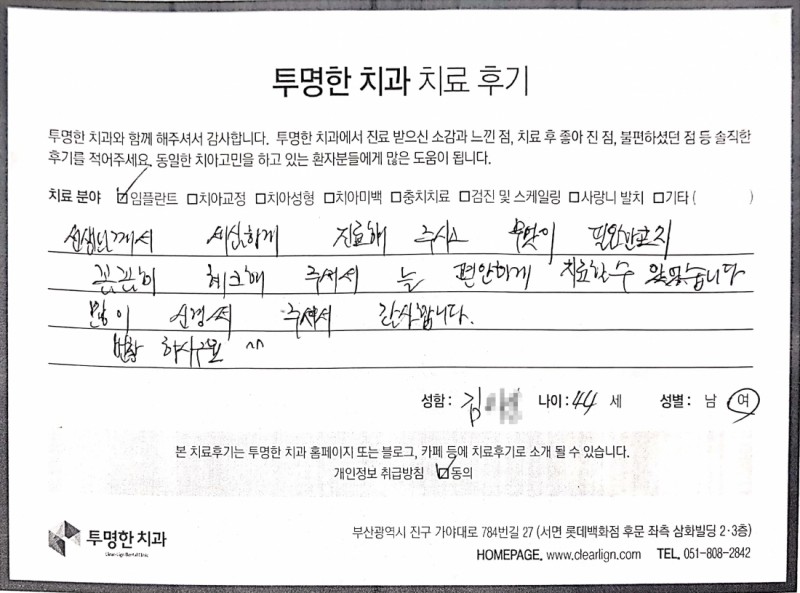 투명한 치과 치료 후기
투명한 치과와 함께 해주셔서 감사합니다. 투명한 치과에서 진료 받으신 소감과 느낀 점, 치료 후 좋아 진 점, 불편하셨던 점 등 솔직한
후기를 적어주세요. 동일한 치아고민을 하고 있는 환자분들에게 많은 도움이 됩니다.
치료 분야 ☑임플란트 □치아교정 □치아성형 □치아미백 □충치치료 □검진 및 스케일링 □사랑니 발치 □기타 ( )
선생님께서 세심하게 진료해 주시고 무엇이 필요한지
꼼꼼히 체크해 주셔서 늘 편안하게 치료할수 있었습니다
많이 신경써 주셔서 감사합니다.
번창 하시구요 ^^
성함 : 김 나이 : 44 세 성별 : 남 여
본 치료후기는 투명한 치과 홈페이지 또는 블로그, 카페 등에 치료후기로 소개 될 수 있습니다.
개인정보 취급방침 ☑동의
투명한 치과
부산광역시 진구 가야대로 784번길 27 (서면 롯데백화점 후문 좌측 삼화빌딩 2·3층)
HOMEPAGE. www.clearlign.com TEL. 051-808-2842